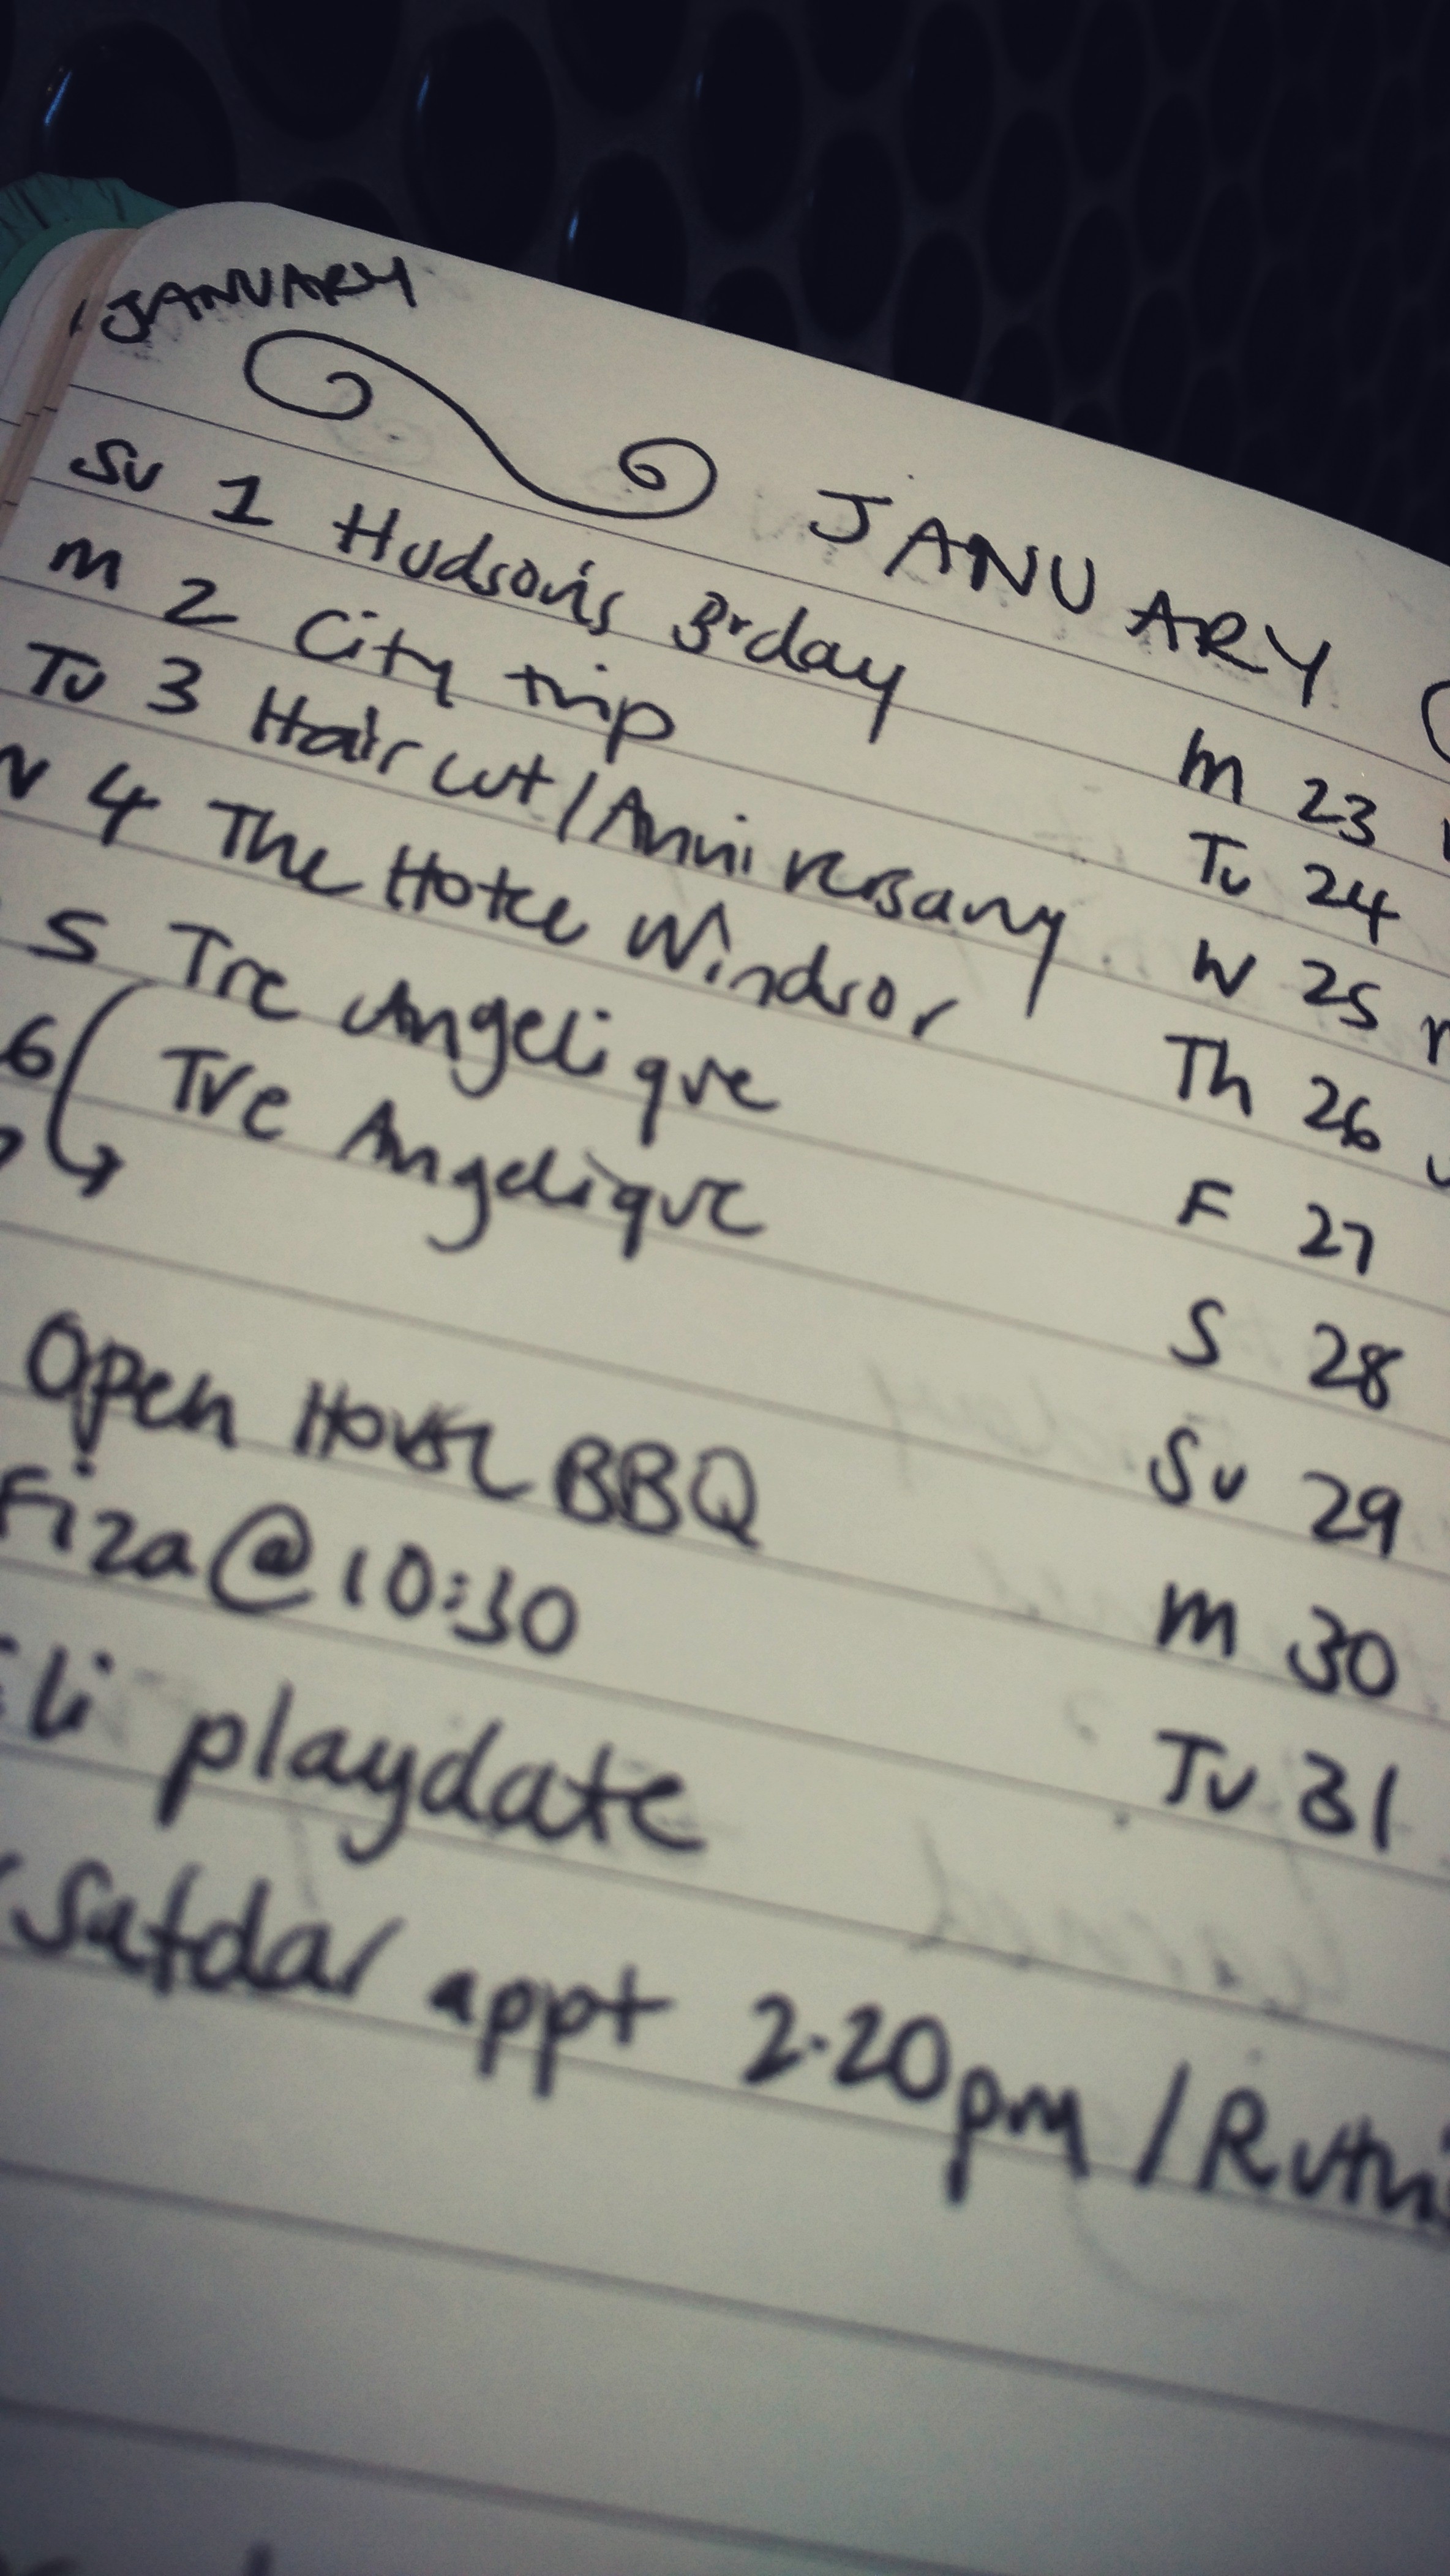 JANUARY
JANUARY
Su 1 Hudson's B'day
M 2 City trip
Tu 3 Hair cut/Anniversary
W 4 The Hotel Windsor
5 Tre Angelique
6 Tre Angelique
Open House BBQ
Fiza@10:30
playdate
appt 2.20pm /
M 23
Tu 24
W 25
Th 26
F 27
S 28
Su 29
M 30
Tu 31